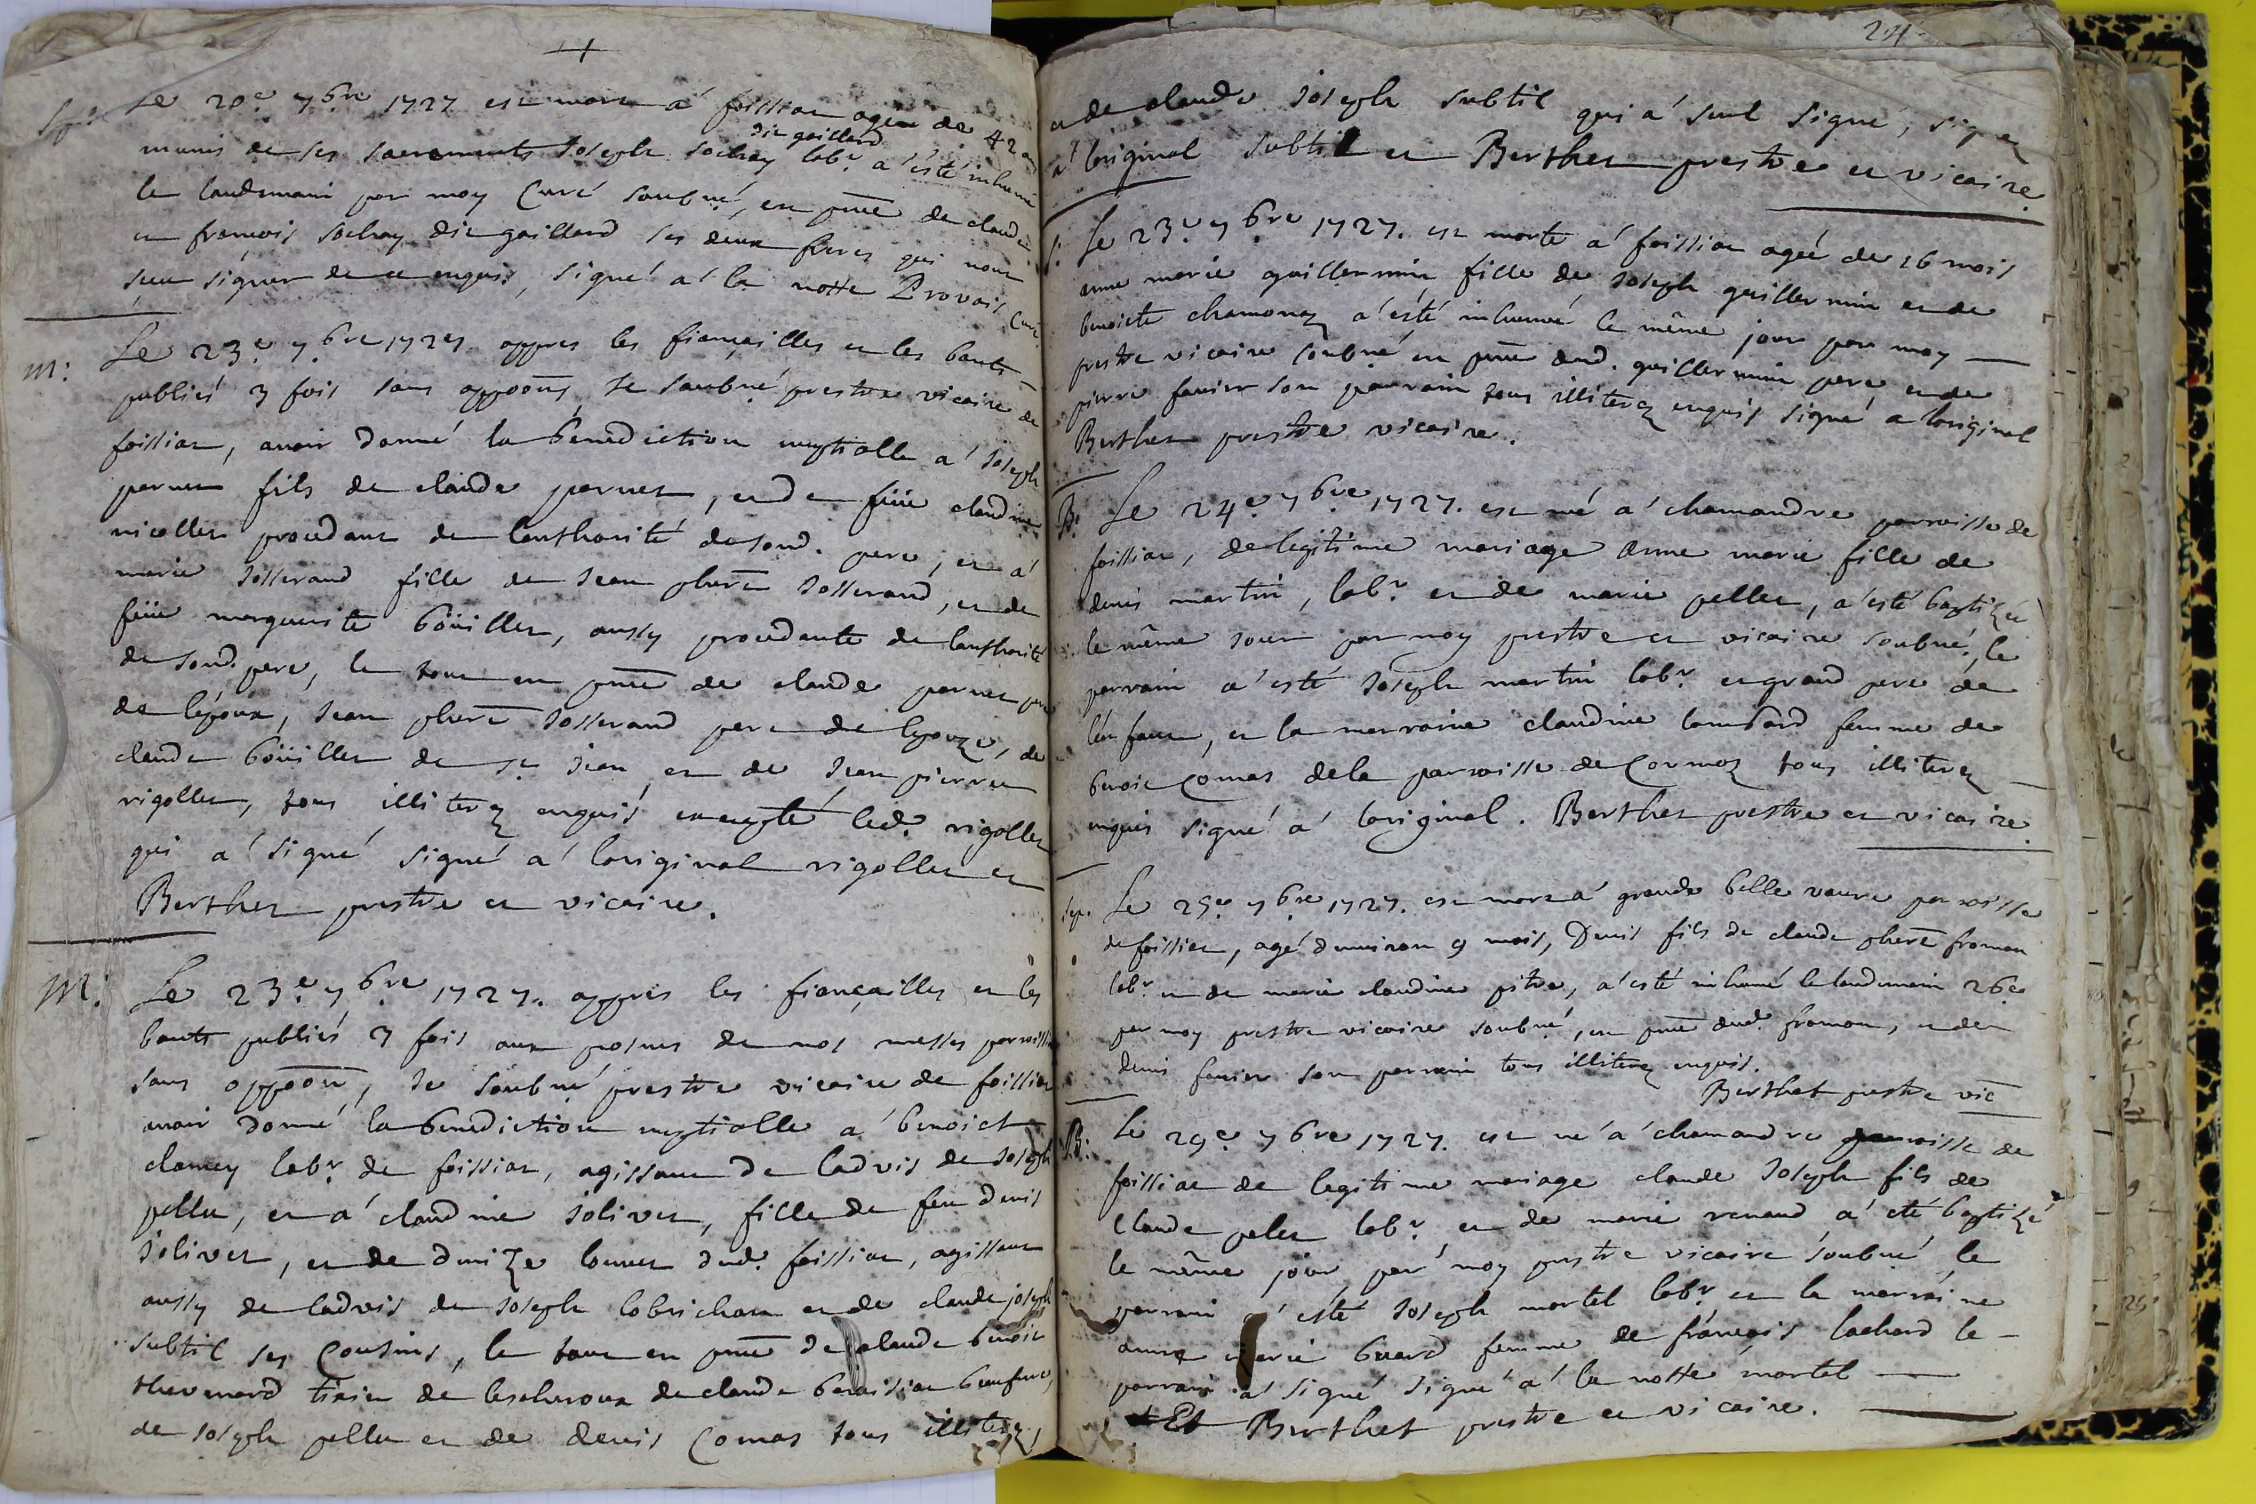 +
Sep: Le 20.e 7bre 1727 est mort a' foissiat agee de 42 ans
dit gaillard
munis de ses sacrements Joseph sochay labr. a' esté inhumé
le landemain par moy Curé soubné, en pnce de claude
et francois sochay dit gaillard ses deux freres qui n'ont
sceu signer de ce enquis, signé a' la notte Provais Curé
m: Le 23.e 7bre 1727 appres les fiançailles et les bants
publiés 3 fois sans oppoons, Je soubné prestre vicaire de
foissiat, avoir donné la benediction nuptialle a' Joseph
pernet fils de claude pernet, et de füe claudine
nicollet procedant de lauthorité de sond. pere, et a'
marie Josserand fille de Jean phert Josserand, et de
füe marguerite boüillet, aussy procedante de lauthorité
de sond. pere, le tout en pnce de claude pernet pere
de lépoux, Jean phert Josserand pere de lépouze, de
claude boüillet de st Jean et de Jean pierre
rigollet, tous illiterez enquis excepté led. rigollet
qui a' signé signé a' loriginal rigollet et
Berthet prestre et vicaire.
M: Le 23.e 7bre 1727. appres les fiançailles et les
bants publiés 3 fois aux prosnes de nos messes parroissi
sans oppoon, Je soubné prestre vicaire de foissiat
avoir donné la benediction nuptialle a' benoict
clamcy labr. de foissiat, agissant de ladvis de Joseph
pellu, et a' claudine Jolivet, fille de feu denis
Jolivet, et de denize louvet dud. foissiat, agissant
aussy de ladvis de Joseph lobrichau et de claude joseph
subtil ses Cousins, le tout en pnce de claude benoit
thevenard tixier de lescheroux de claude benoit
de Joseph pellu et de denis Comas tous illiterez,
24
et de claude Joseph subtil qui a' seul signé, signé
a' loriginal subtil et Berthet prestre et vicaire.
S: Le 23.e 7bre 1727. est morte a' foissiat ageé de 16 mois
anne marie guillermin fille de Joseph guillermin et de
benoicte chamonaz a'esté inhumeé le même jour par moy
prestre vicaire soubné en pnce dud. guillermin pere, et de
pierre favier son parrain tous illiterez enquis signé a loriginal
Berthet prestre vicaire.
B: Le 24.e 7bre 1727. est né a' chamandre parroisse de
foissiat, de legitime mariage anne marie fille de
denis martin, labr. et de marie pellet, a'esté baptizée
le même jour par moy prestre et vicaire soubné, le
parrain a'esté Joseph martin labr. et grand pere de
lénfant, et la marraine claudine lombard femme de
benoit Comas de la parroisse de Cormoz tous illiterez
enquis signé a' loriginal. Berthet prestre et vicaire.
Sep. Le 25.e 7bre 1727. est mort a' grande belle vavre parroisse
de foissiat, agé d'environ 9 mois, Denis fils de claude phert froment
labr. et de marie claudine pitre, a'esté inhumé le landemain 26.e
par moy prestre vicaire soubné, en pnce dud. froment, et de
denis favier son parrain tous illiterez enquis.
Berthet prestre vic
B: Le 29.e 7bre 1727. est né a' chamandre parroisse de
foissiat de legitime mariage claude Joseph fils de
Claude pelet labr. et de marie renaud a' eté baptizé
le même jour par moy prestre vicaire soubné, le
parrain a' esté Joseph martel labr. et la marraine
anne marie buard femme de françois lachard le
parrain a' signé signé a' la notte martel
Et Berthet prestre et vicaire.